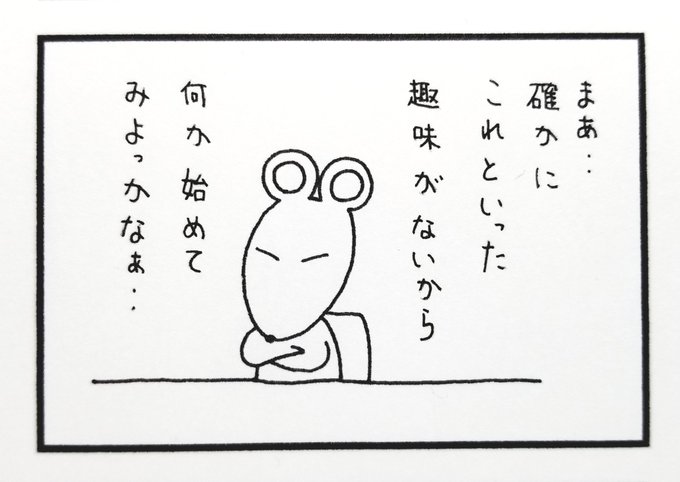 まぁ‥
確かに
これといった
趣味がないから
何か始めて
みよっかなぁ‥